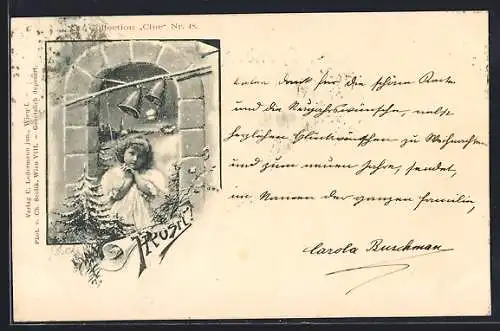 Collection „Cine" Nr. 48.
Verlag C. Ledermann jun., Wien I.
Phot. v. Ch. Scolik, Wien VIII. — Gesetzlich deponirt.
PROSIT!
Dank für die schöne Karte
und die Neujahrswünsche, nebst
herzlichen Glückwünschen zu Weihnachten
und zum neuen Jahre, sendet,
im Namen der ganzen Familie,
Carola Buschman